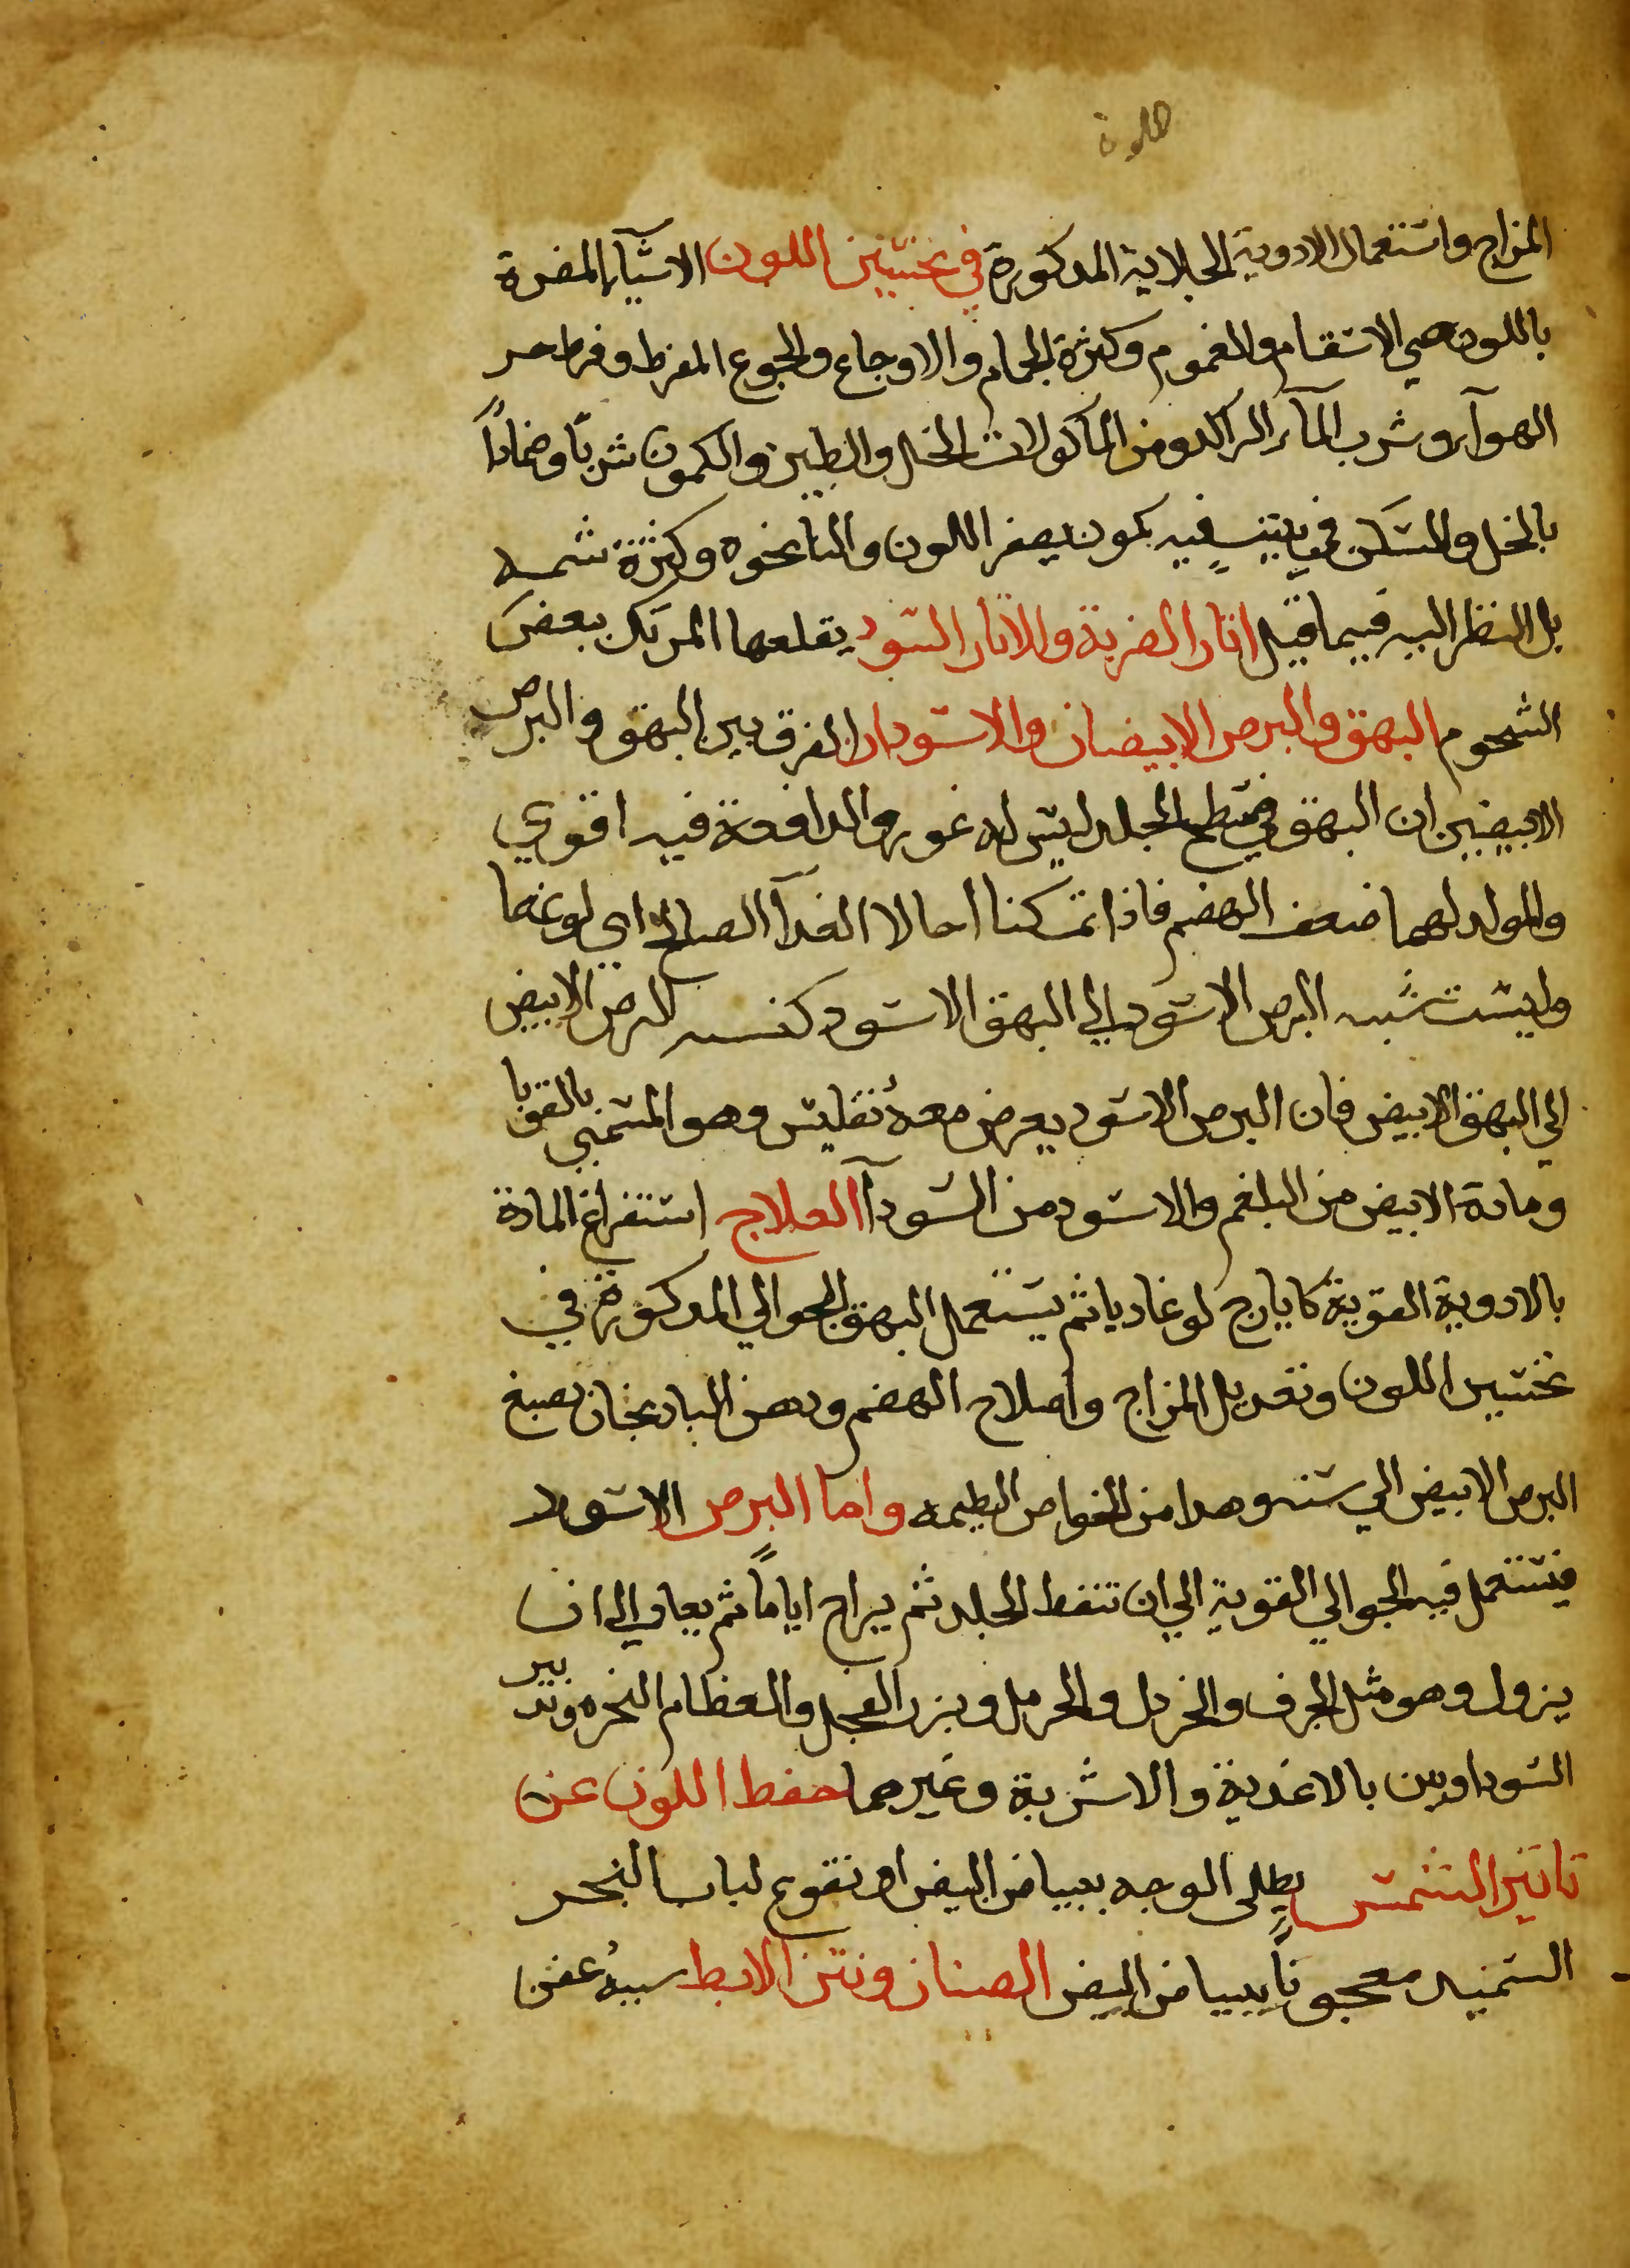 المزاج واستعمال الادوية الجلاية المدكورة في تحسين اللون الاشيآ المضرة
باللون هي الاسقام والغموم وكثرة الجماع والاوجاع والجوع المفرط وفرط حر
الهوآ وشرب المآ الراكد ومن الماكولات الخل والطين والكمون شربًا وضمادًا
بالخل والسكن في بيت فيه كمون يصفر اللون والنانخوه وكثرة شمه
بل النظر اليه فيما قيل اثار الضربة والاثار السود يقلعها المرتك ببعض
الشحوم البهق والبرص الابيضان والاسودان الفرق بين البهق والبرص
الابيضين ان البهق في سطح الجلد ليس له غور والدافعة فيه اقوي
والمولد لهما ضعف الهضم فاذا تمكنا احالا الغدآ الصالح الي نوعهما
وليست نسبه البرص الاسود الي البهق الاسود كنسبه البرص الابيض
الي البهق الابيض فان البرص الاسود يعرض معه تفليس وهو المسمي بالقوبا
ومادة الابيض من البلغم والاسود من السودآ العلاج استفراغ المادة
بالادوية القوية كايارج لوغاديا ثم يستعمل البهق الجوالي المدكورة في
تحسين اللون وتعديل المزاج واصلاح الهضم ودهن البادنجان يصبغ
البرص الابيض الي سنه وهدا من الخواص العظيمه واما البرص الاسود
فيستعمل فيه الجوالي القوية الي ان تنفط الجلد ثم يراح اياماً ثم يعاود الي ان
يزول وهو مثل الحرف والخردل والحرمل وبزر الفجل والعظام النخره وتدبير
السوداويين بالاغدية والاشربة وغيرهما حفظ اللون عن
تاثير الشمس يطلي الوجه ببياض البيض او نقوع لباب الخبز
السميد معجوناً ببياض البيض الصنان ونتن الابط سببهُ عفن